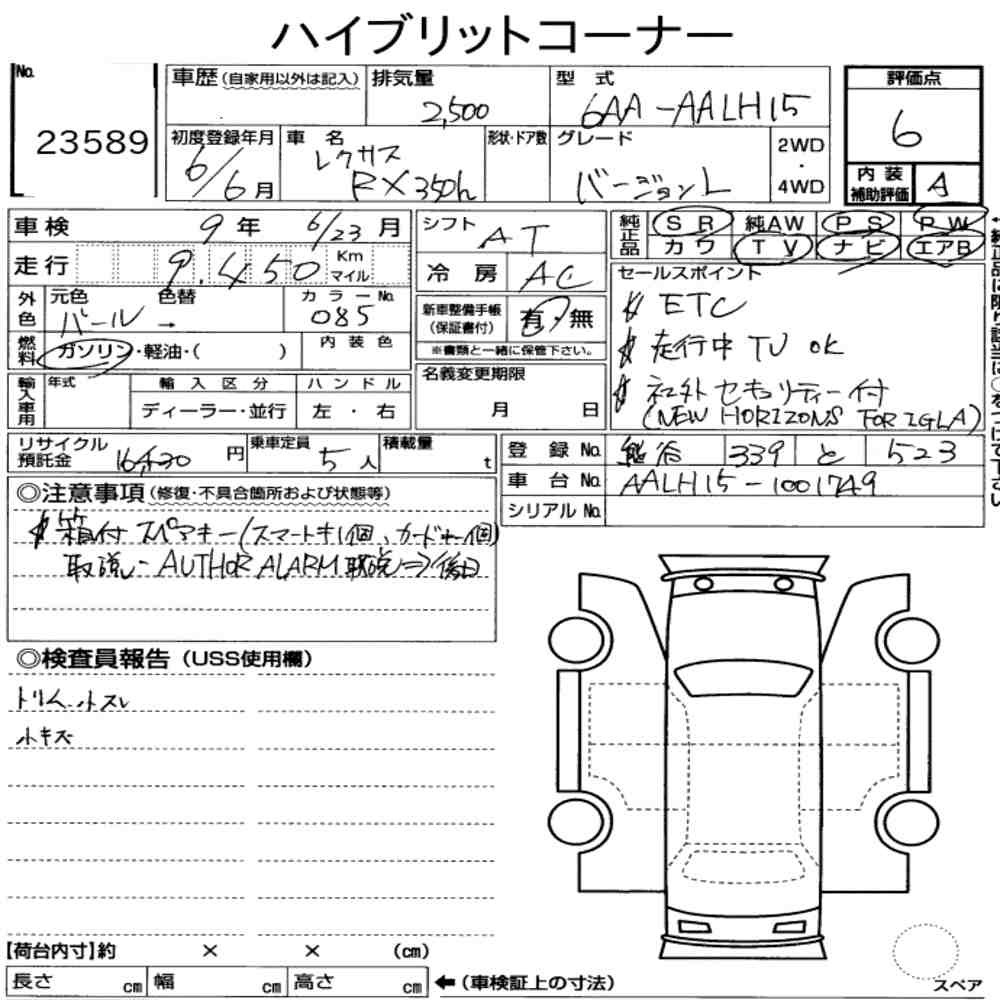 ハイブリットコーナー
No. 23589
車歴 (自家用以外は記入) 排気量 2,500 型式 6AA-AALH15
初度登録年月 6/6月 車名 レクサス RX350h 形状・ドア数 グレード バージョンL 2WD・4WD
評価点 6
内装補助評価 A
車検 9年 6/23月
走行 9,450 Km マイル
外色 元色 パール 色替 → カラーNo. 085
燃料 ガソリン・軽油・( ) 内装色
輸入車用 年式 輸入区分 ディーラー・並行 ハンドル 左・右
リサイクル預託金 円 乗車定員 5人 積載量 t
シフト AT
冷房 AC
新車整備手帳(保証書付) 有・無
※書類と一緒に保管下さい。
名義変更期限 月 日
純正品 SR 純AW PS PW
カワ TV ナビ エアB
←純正品に限り該当に○をつけて下さい
セールスポイント
ETC
走行中 TV OK
社外セキュリティー付
(NEW HORIZONS FOR IGLA)
登録No. 熊谷 339 と 523
車台No. AALH15-1001749
シリアルNo.
◎注意事項 (修復・不具合箇所および状態等)
箱付 スペアキー(スマートキー1個、カードキー1個)
取説・AUTHOR ALARM取説⇒後日
◎検査員報告 (USS使用欄)
トリム小スレ
小キズ
【荷台内寸】約 × × (cm)
長さ cm 幅 cm 高さ cm ←(車検証上の寸法)
スペア